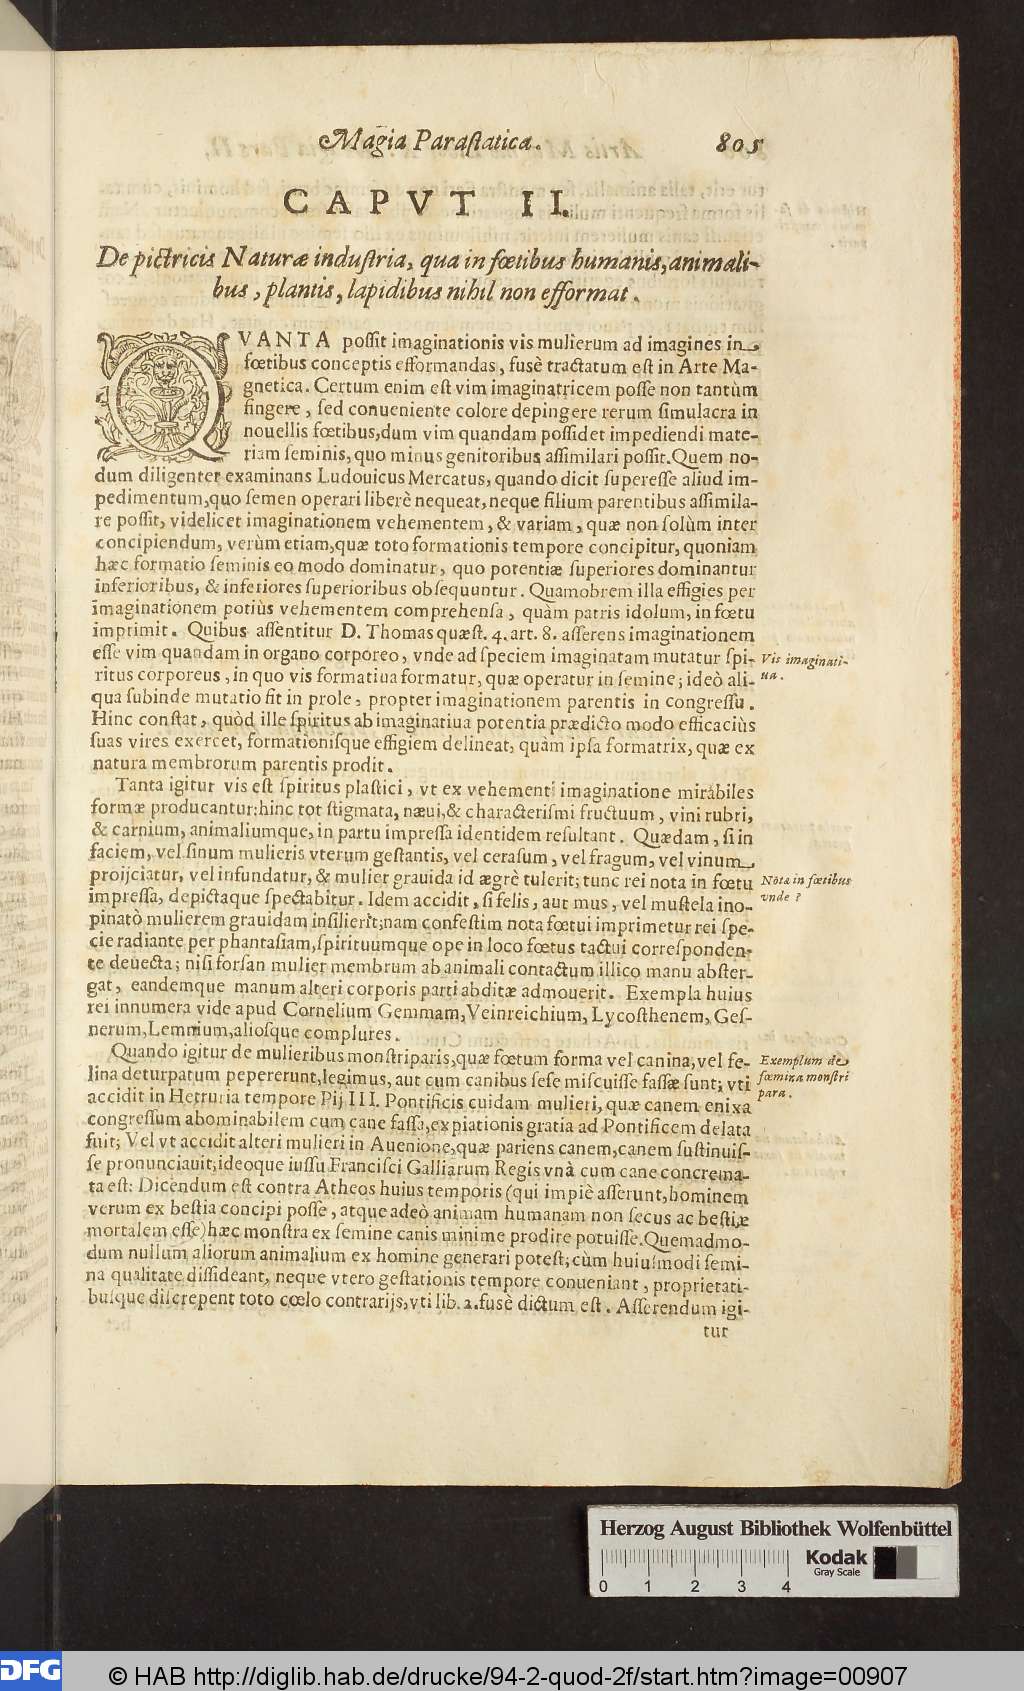 Magia Paraſtatica. 805
CAPVT II.
De pictricis Naturæ induſtria, qua in fœtibus humanis, animali-
bus, plantis, lapidibus nihil non efformat.
QVANTA poſſit imaginationis vis mulierum ad imagines in
fœtibus conceptis efformandas, fusè tractatum eſt in Arte Ma-
gnetica. Certum enim eſt vim imaginatricem poſſe non tantùm
fingere, ſed conueniente colore depingere rerum ſimulacra in
nouellis fœtibus, dum vim quandam poſſidet impediendi mate-
riam ſeminis, quo minus genitoribus aſſimilari poſſit. Quem no-
dum diligenter examinans Ludouicus Mercatus, quando dicit ſupereſſe aliud im-
pedimentum, quo ſemen operari liberè nequeat, neque filium parentibus aſſimila-
re poſſit, videlicet imaginationem vehementem, & variam, quæ non ſolùm inter
concipiendum, verùm etiam, quæ toto formationis tempore concipitur, quoniam
hæc formatio ſeminis eo modo dominatur, quo potentiæ ſuperiores dominantur
inferioribus, & inferiores ſuperioribus obſequuntur. Quamobrem illa effigies per
imaginationem potiùs vehementem comprehenſa, quàm patris idolum, in fœtu
imprimit. Quibus aſſentitur D. Thomas quæſt. 4. art. 8. aſſerens imaginationem
eſſe vim quandam in organo corporeo, vnde ad ſpeciem imaginatam mutatur ſpi-
Vis imaginati-
ua.
ritus corporeus, in quo vis formatiua formatur, quæ operatur in ſemine; ideò ali-
qua ſubinde mutatio fit in prole, propter imaginationem parentis in congreſſu.
Hinc conſtat, quòd ille ſpiritus ab imaginatiua potentia prædicto modo efficaciùs
ſuas vires exercet, formationiſque effigiem delineat, quàm ipſa formatrix, quæ ex
natura membrorum parentis prodit.
Tanta igitur vis eſt ſpiritus plaſtici, vt ex vehementi imaginatione mirabiles
formæ producantur: hinc tot ſtigmata, næui, & characteriſmi fructuum, vini rubri,
& carnium, animaliumque, in partu impreſſa identidem reſultant. Quædam, ſi in
faciem, vel ſinum mulieris vterum geſtantis, vel ceraſum, vel fragum, vel vinum
proijciatur, vel infundatur, & mulier grauida id ægrè tulerit; tunc rei nota in fœtu
Nota in fœtibus
vnde?
impreſſa, depictaque ſpectabitur. Idem accidit, ſi felis, aut mus, vel muſtela ino-
pinatò mulierem grauidam inſilierit; nam confeſtim nota fœtui imprimetur rei ſpe-
cie radiante per phantaſiam, ſpirituumque ope in loco fœtus tactui correſponden-
te deuecta; niſi forſan mulier membrum ab animali contactum illico manu abſter-
gat, eandemque manum alteri corporis parti abditæ admouerit. Exempla huius
rei innumera vide apud Cornelium Gemmam, Veinreichium, Lycoſthenem, Geſ-
nerum, Lemnium, alioſque complures.
Quando igitur de mulieribus monſtriparis, quæ fœtum forma vel canina, vel fe-
Exemplum de
fœmina monſtri
para.
lina deturpatum pepererunt, legimus, aut cum canibus ſeſe miſcuiſſe faſſæ ſunt; vti
accidit in Hetruria tempore Pij III. Pontificis cuidam mulieri, quæ canem enixa
congreſſum abominabilem cum cane faſſa, expiationis gratia ad Pontificem delata
fuit; Vel vt accidit alteri mulieri in Auenione, quæ pariens canem, canem ſuſtinuiſ-
ſe pronunciauit; ideoque iuſſu Franciſci Galliarum Regis vnà cum cane concrema-
ta eſt: Dicendum eſt contra Atheos huius temporis (qui impiè aſſerunt, hominem
verum ex beſtia concipi poſſe, atque adeò animam humanam non ſecus ac beſtiæ
mortalem eſſe) hæc monſtra ex ſemine canis minime prodire potuiſſe. Quemadmo-
dum nullum aliorum animalium ex homine generari poteſt; cùm huiuſmodi ſemi-
na qualitate diſſideant, neque vtero geſtationis tempore conueniant, proprietati-
buſque diſcrepent toto cœlo contrarijs, vti lib. 2. fusè dictum eſt. Aſſerendum igi-
tur
Herzog August Bibliothek Wolfenbüttel
Kodak
Gray Scale
0 1 2 3 4
DFG © HAB http://diglib.hab.de/drucke/94-2-quod-2f/start.htm?image=00907